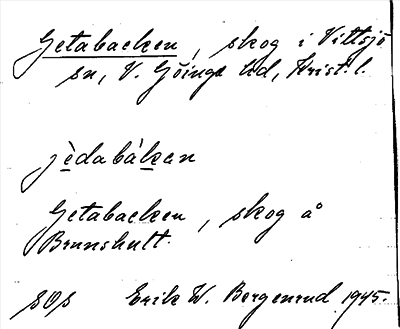 Getabacken, skog i Vittsjö
sn, V. Göinge hd, Krist. l.
jèdabàkan
Getabacken, skog å
Brunshult.
sOs Erik W. Bergenrud 1945.